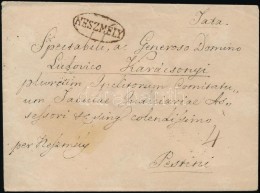 NESZMÉLY
Tata.
Spectabili, a Generoso Domino
Ludovico Karácsonyi
plurium Comitatu
um Tabulae Judiciariae As
sessori colendissimo
4
per Neszmély
Pestini